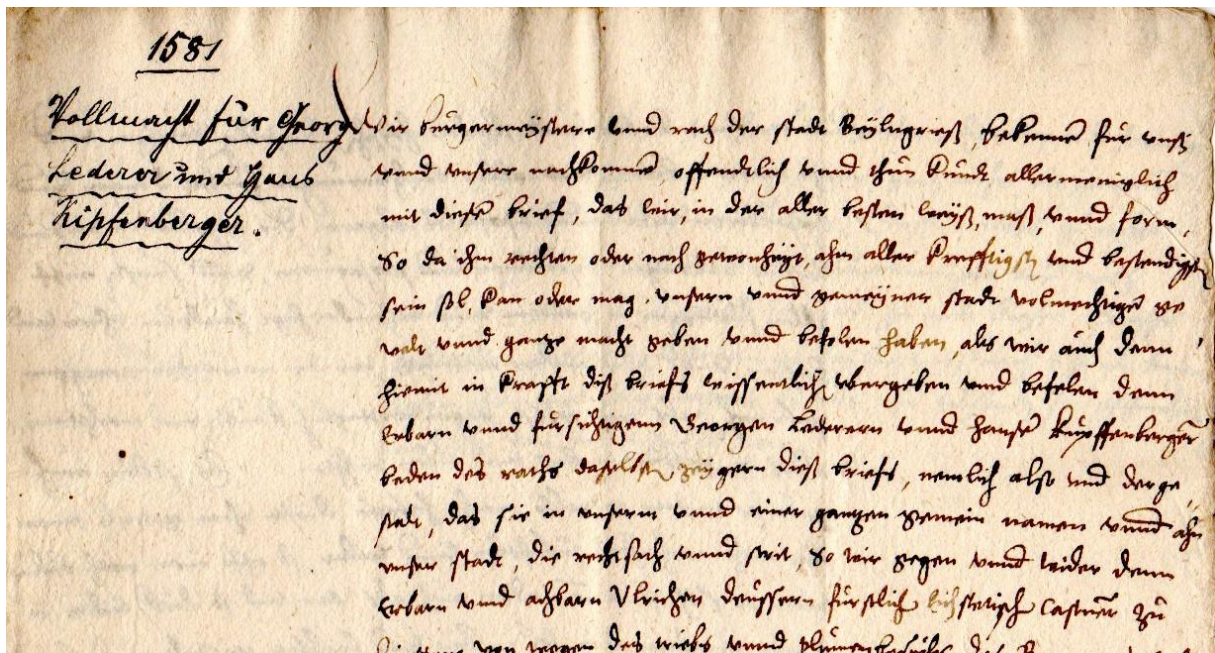 1581
Vollmacht für Georg
Lederer und Hans
Kipfenberger.
Wir burgermeystere vnnd rath der stadt Beylngrieß, bekennen für vnß
vnnd vnsere nachkommen, offendtlich vnnd thun kundt allermeniglich
mit diesem brief, das wir, in der aller besten weyß, maß, vnnd form,
So da ihm rechten oder nach gewonheyt, ahm aller krefftigsten vnd bestendigsten
sein sol, kan oder mag, vnsern vnnd gemeyner stadt volmechtigen ge
walt vnnd gantze macht geben vnnd befolen haben, als wir auch denn
hiemit in krafft diß briefs wissentlich vbergeben vnnd befelen denn
Erbarn vnnd fürsichtigenn Georgen Lederern vnnd Hansen Kupffenberger
beden des raths daselbsten zeygern dieß briefs, nemlich also vnd derge
stalt, das sie in vnserm vnnd einer gantzen gemein namen vnnd ahn
vnser stadt, die rechtsach vnnd streit, So wir gegen vnnd wider denn
Erbarn vnnd achbarn Vlrichen deussern fürstlich Eichstetisch Castner zu
von wegen des triebs vnnd